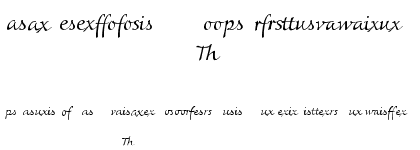 asax esexffofosis oops rfrsttusvawaixux
Th
ps asuxis of as vaisaxex osoorfesrs usis ux exix isttexrs ux waisffex
Th